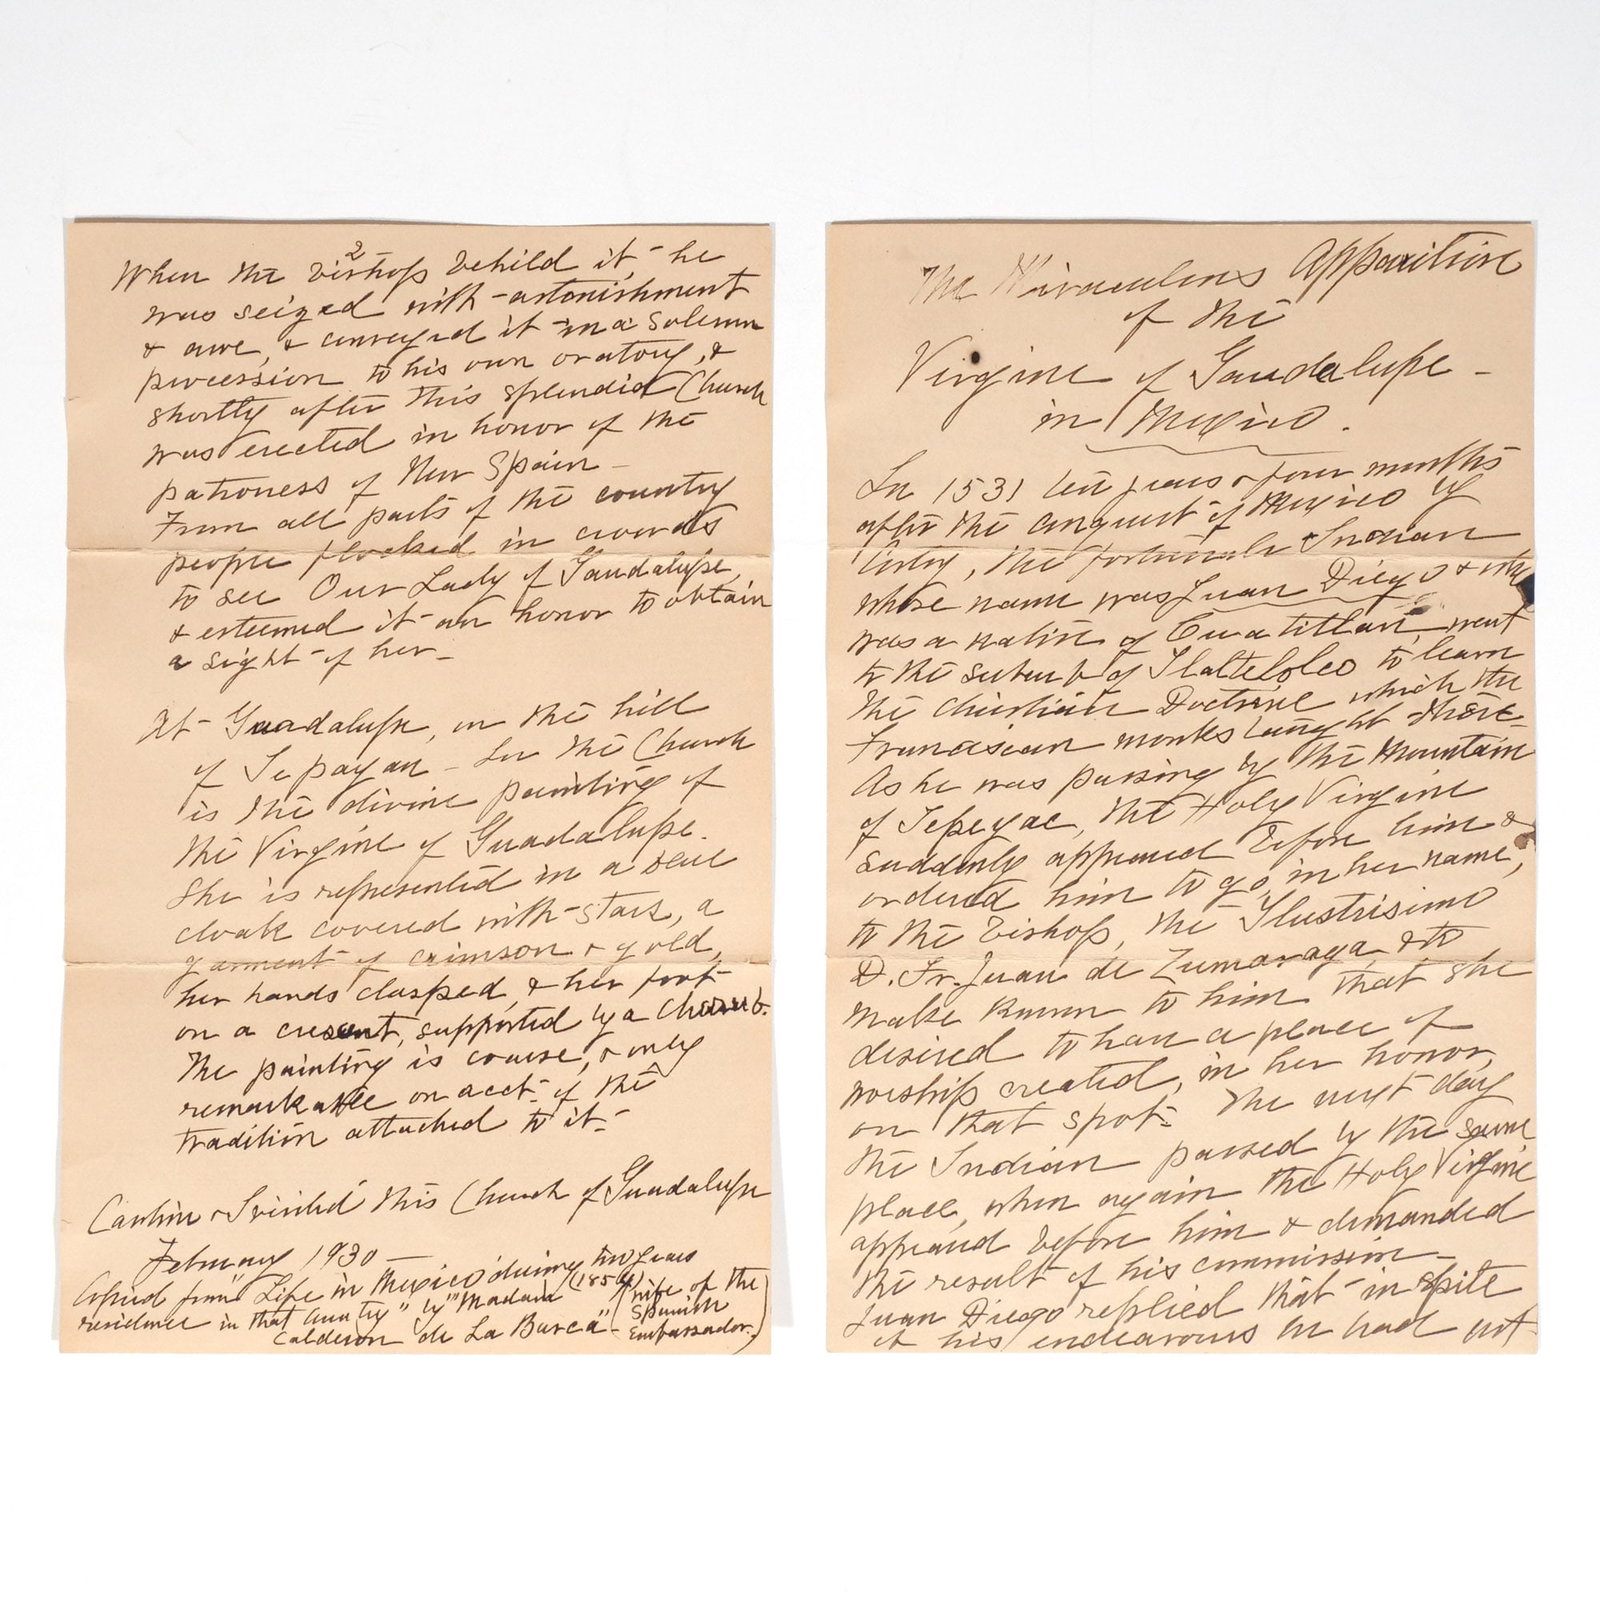 The Miraculous Apparition
of the
Virgine of Guadalupe -
in Mexico.
In 1531 ten years & four months
after the conquest of Mexico by
Cortez, the fortunate Indian
whose name was Juan Diego & who
was a native of Cuatitlan, went
to the suburb of Tlaltelolco to learn
the Christian Doctrine which the
Franciscan monks taught there
As he was passing by the mountain
of Tepeyac, the Holy Virgine
suddenly appeared before him &
ordered him to go, in her name,
to the Bishop, the Ylustrisimo
D. Fr. Juan de Zumaraga, & to
make known to him that she
desired to have a place of
worship erected, in her honor,
on that spot. The next day
the Indian passed by the same
place, when again the Holy Virgine
appeared before him & demanded
the result of his commission -
Juan Diego replied that in spite
of his endeavours he had not
2
When the bishop behild it, he
was seized with astonishment
& awe, & conveyed it in a solemn
procession to his own oratory, &
shortly after this splendid Church
was erected in honor of the
patroness of New Spain -
From all parts of the country
people flocked in crowds
to see Our Lady of Guadalupe
& esteemed it an honor to obtain
a sight of her -
At Guadalupe, on the hill
of Tepayan - In the Church
is the divine painting of
the Virgine of Guadalupe.
She is represented in a blue
cloak covered with stars, a
garment of crimson & gold,
her hands clasped, & her foot
on a cresent, supported by a cherub.
The painting is coarse, & only
remarkable on acct. of the
tradition attached to it -
& I visited this Church of Guadalupe
February 1930 -
Copied from "Life in Mexico during two years
residence in that country" by "Madame (1854) (wife of the
Calderon de La Barca" - Spanish
Embassador.)